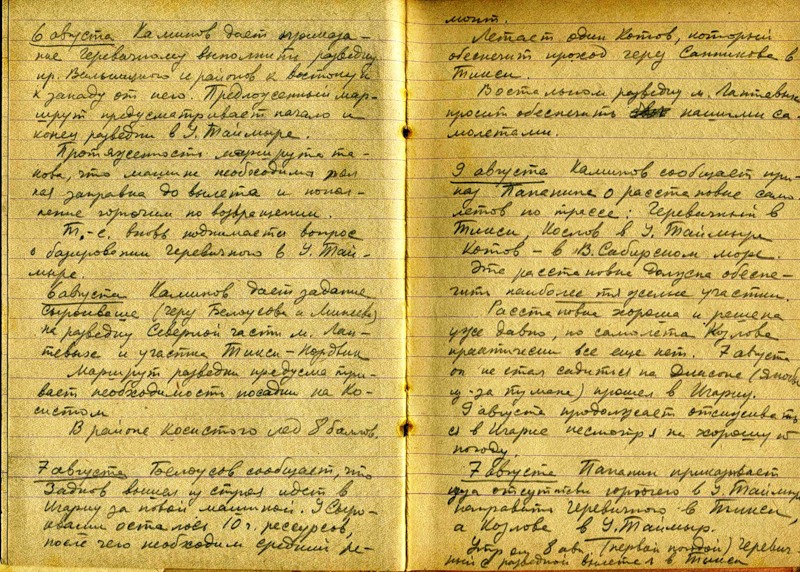 6 августа Калинов дает приказа-
ние Черевичному выполнить разведку
пр. Вилькицкого и районов к востоку и
к западу от него. Предложенный мар-
шрут предусматривает начало и
конец разведки в У. Таймыре.
Протяженность маршрута та-
кова, что машине необходима пол
ная заправка до вылета и попол-
нение горючим по возвращении.
Т.-е. вновь поднимается вопрос
о базировании Черевичного в У. Тай-
мыре.
6 августа Калинов дает задание
Сырокваше (через Белоусова и Минеева)
на разведку Северной части м. Лап-
тевых и участка Тикси – Нордвик
Маршрут разведки предусматри-
вает необходимость посадки на Ко-
систом
В районе Косистого лед 8 баллов.
7 августа Белоусов сообщает, что
Задков вышел из строя идет в
Игарку за новой машиной. У Сыро-
кваши осталось 10 ч. ресурсов,
после чего необходим средний ре-
монт.
Летает один Котов, который
обеспечит проход через Санникова в
Тикси.
В остальном разведку м. Лаптевых
просит обеспечить нашими са-
молетами.
9 августа Калинов сообщает при-
каз Папанина о расстановке само-
летов по трассе: Черевичный в
Тикси, Козлов в У. Таймыре
Котов – в В. Сибирском море.
Эта расстановка должна обеспе-
чить наиболее тяжелые участки.
Расстановка хороша и решена
уже давно, но самолета Козлова
практически все еще нет. 7 августа
он не стал садится на Диксоне (якобы
из-за тумана) прошел в Игарку.
9 августа продолжает отсиживать
ся в Игарке несмотря на хорошую
погоду.
7 августа Папанин приказывает
из-за отсутствия горючего в У. Таймыре
направить Черевичного в Тикси,
а Козлова в У. Таймыр.
Утром 8 авг. (первой погодой) Черевич-
ный с разведкой вылетел в Тикси